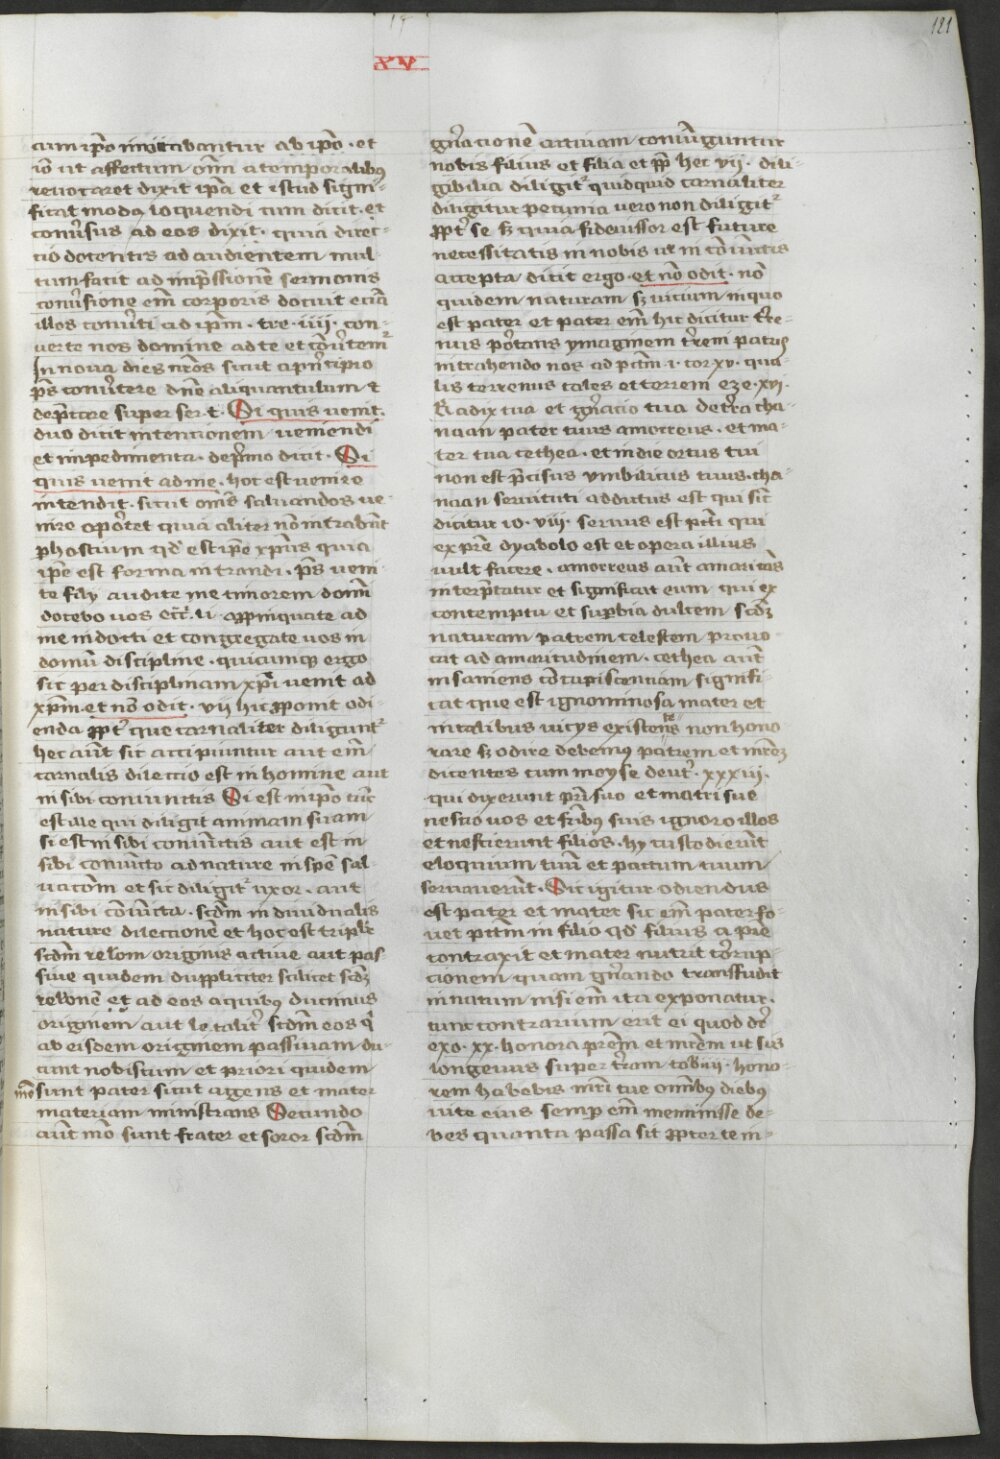 121
XV
cum ip̄o imitabantur ab ip̄o · et
iō ut affectum om̄ a temporalibus
reuocaret dixit ip̄a et istud signi-
ficat modus loquendi cum dicit · et
conuersus ad eos dixit · quia direc-
tio docentis ad audientem mul-
tum facit ad imp̄ssionem sermonis
conuersione em̄ corporis docuit eciā
illos conuerti ad ip̄m · tre · iiii · con-
uerte nos domine ad te et conuertemur
Innoua dies nr̄os sicut a principio
ps̄ conuertere dn̄e aliquantulum et
dep̄care super ser · t · Si quis uenit ·
duo dicit intencionem ueniendi
et impedimenta · de primo dicit · Si
quis uenit ad me · hoc est uenire
intendit · sicut om̄s saluandos ue-
nire oportet quia aliter nō intrabūt
p hostium qd̄ est ip̄e xp̄us quia
ip̄e est forma intrandi · ps̄ ueni-
te filij audite me timorem domī
docebo uos ecc̄i · li appinquate ad
me indocti et congregate uos in
domū discipline · quicumq ergo
sic per disciplinam xp̄i uenit ad
xp̄m · et nō odit · vii hic pponit odi-
enda ppt̄ que carnaliter diligunt̄
hec aūt sic accipiuntur aut em̄
carnalis dileccio est in homine aut
in sibi coniunctis Si est in ip̄o tūc
est ille qui diligit animam suam
si est in sibi coniunctis aut est in
sibi coniuncto ad nature in spē sal-
uacōm et sic diligit̄ uxor · aut
in sibi cōiuncta · scdm̄ indiuidualis
nature dilectionē et hoc est triplr̄
scdm̄ relōm originis actiue aut pas-
siue quidem duppliciter scilicet scdm̄
relōnē et ad eos a quibus ducimus
originem aut lo taliter scdm̄ eos q̄
ab eisdem originem passiuam du-
cunt nobiscum et priori quidem
mō sunt pater sicut agens et mater
materiam ministrans Secundo
aūt mō sunt frater et soror scdm̄
gn̄acionē actiuam coniunguntur
nobis filius et filia et pp̄ hec vii · dili-
gibilia diligit̄ quidquid carnaliter
diligitur pecunia uero non diligit̄
ppt̄ se sz̄ quia fideiussor est future
necessitatis in nobis ul̄ in cōiunctis
accepta dicit ergo · et nō odit · nō
quidem naturam sz̄ uicium in quo
est pater et pater em̄ hic dicitur t̄re-
nus portans ymaginem t̄reni patris
in trahendo nos ad pctm̄ · i · cor xv · qua-
lis terrenus tales et terreni eze · xvi ·
Radix tua et gn̄acio tua de t̄ra cha-
naan pater tuus amorreus · et ma-
ter tua cethea · et in die ortus tui
non est p̄cisus ymbilicus tuus · cha-
naan seruituti addutus est qui sic̄
dicitur io · viii · seruus est pcti qui
ex pr̄e dyabolo est et opera illius
uult facere · amorreus aūt amaricās
interp̄tatur et significat eum qui ex
contemptu et superbia dulcem scdz̄
naturam patrem celestem prouo-
cat ad amaritudinem · cethea aūt
insaniens cōcupiscentiam signifi-
cat que est ignominiosa mater et
in talibus uicijs existentes non hono-
rare sz̄ odire debemus patrem et mr̄ez̄
dicentes cum moyse deut̄ · xxxiii ·
qui dixerunt pr̄i suo et matri sue
nescio uos et fr̄ibus suis ignoro illos
et nescierunt filios · hy custodierūt
eloquium tuū et pactum tuum
seruauerūt · Sic igitur odiendus
est pater et mater sic em̄ pater fo-
uet pctm̄ in filio qd̄ filius a pr̄e
contraxit et mater nutrit corrup-
cionem quam gn̄ando transfudit
in natum nisi em̄ ita exponatur ·
tunc contrarium erit ei quod dr̄
exo · xx · honora pr̄em et mr̄em ut sis
longeuus super t̄ram · tob iiii · hono-
rem habebis mr̄i tue omībus diebus
uite eius semp em̄ meminisse de-
bes quanta passa sit propter te in-